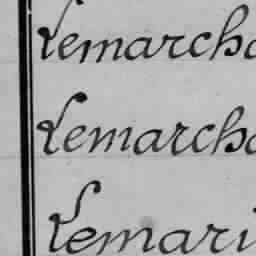 Lemarcha
Lemarcha
Lemari